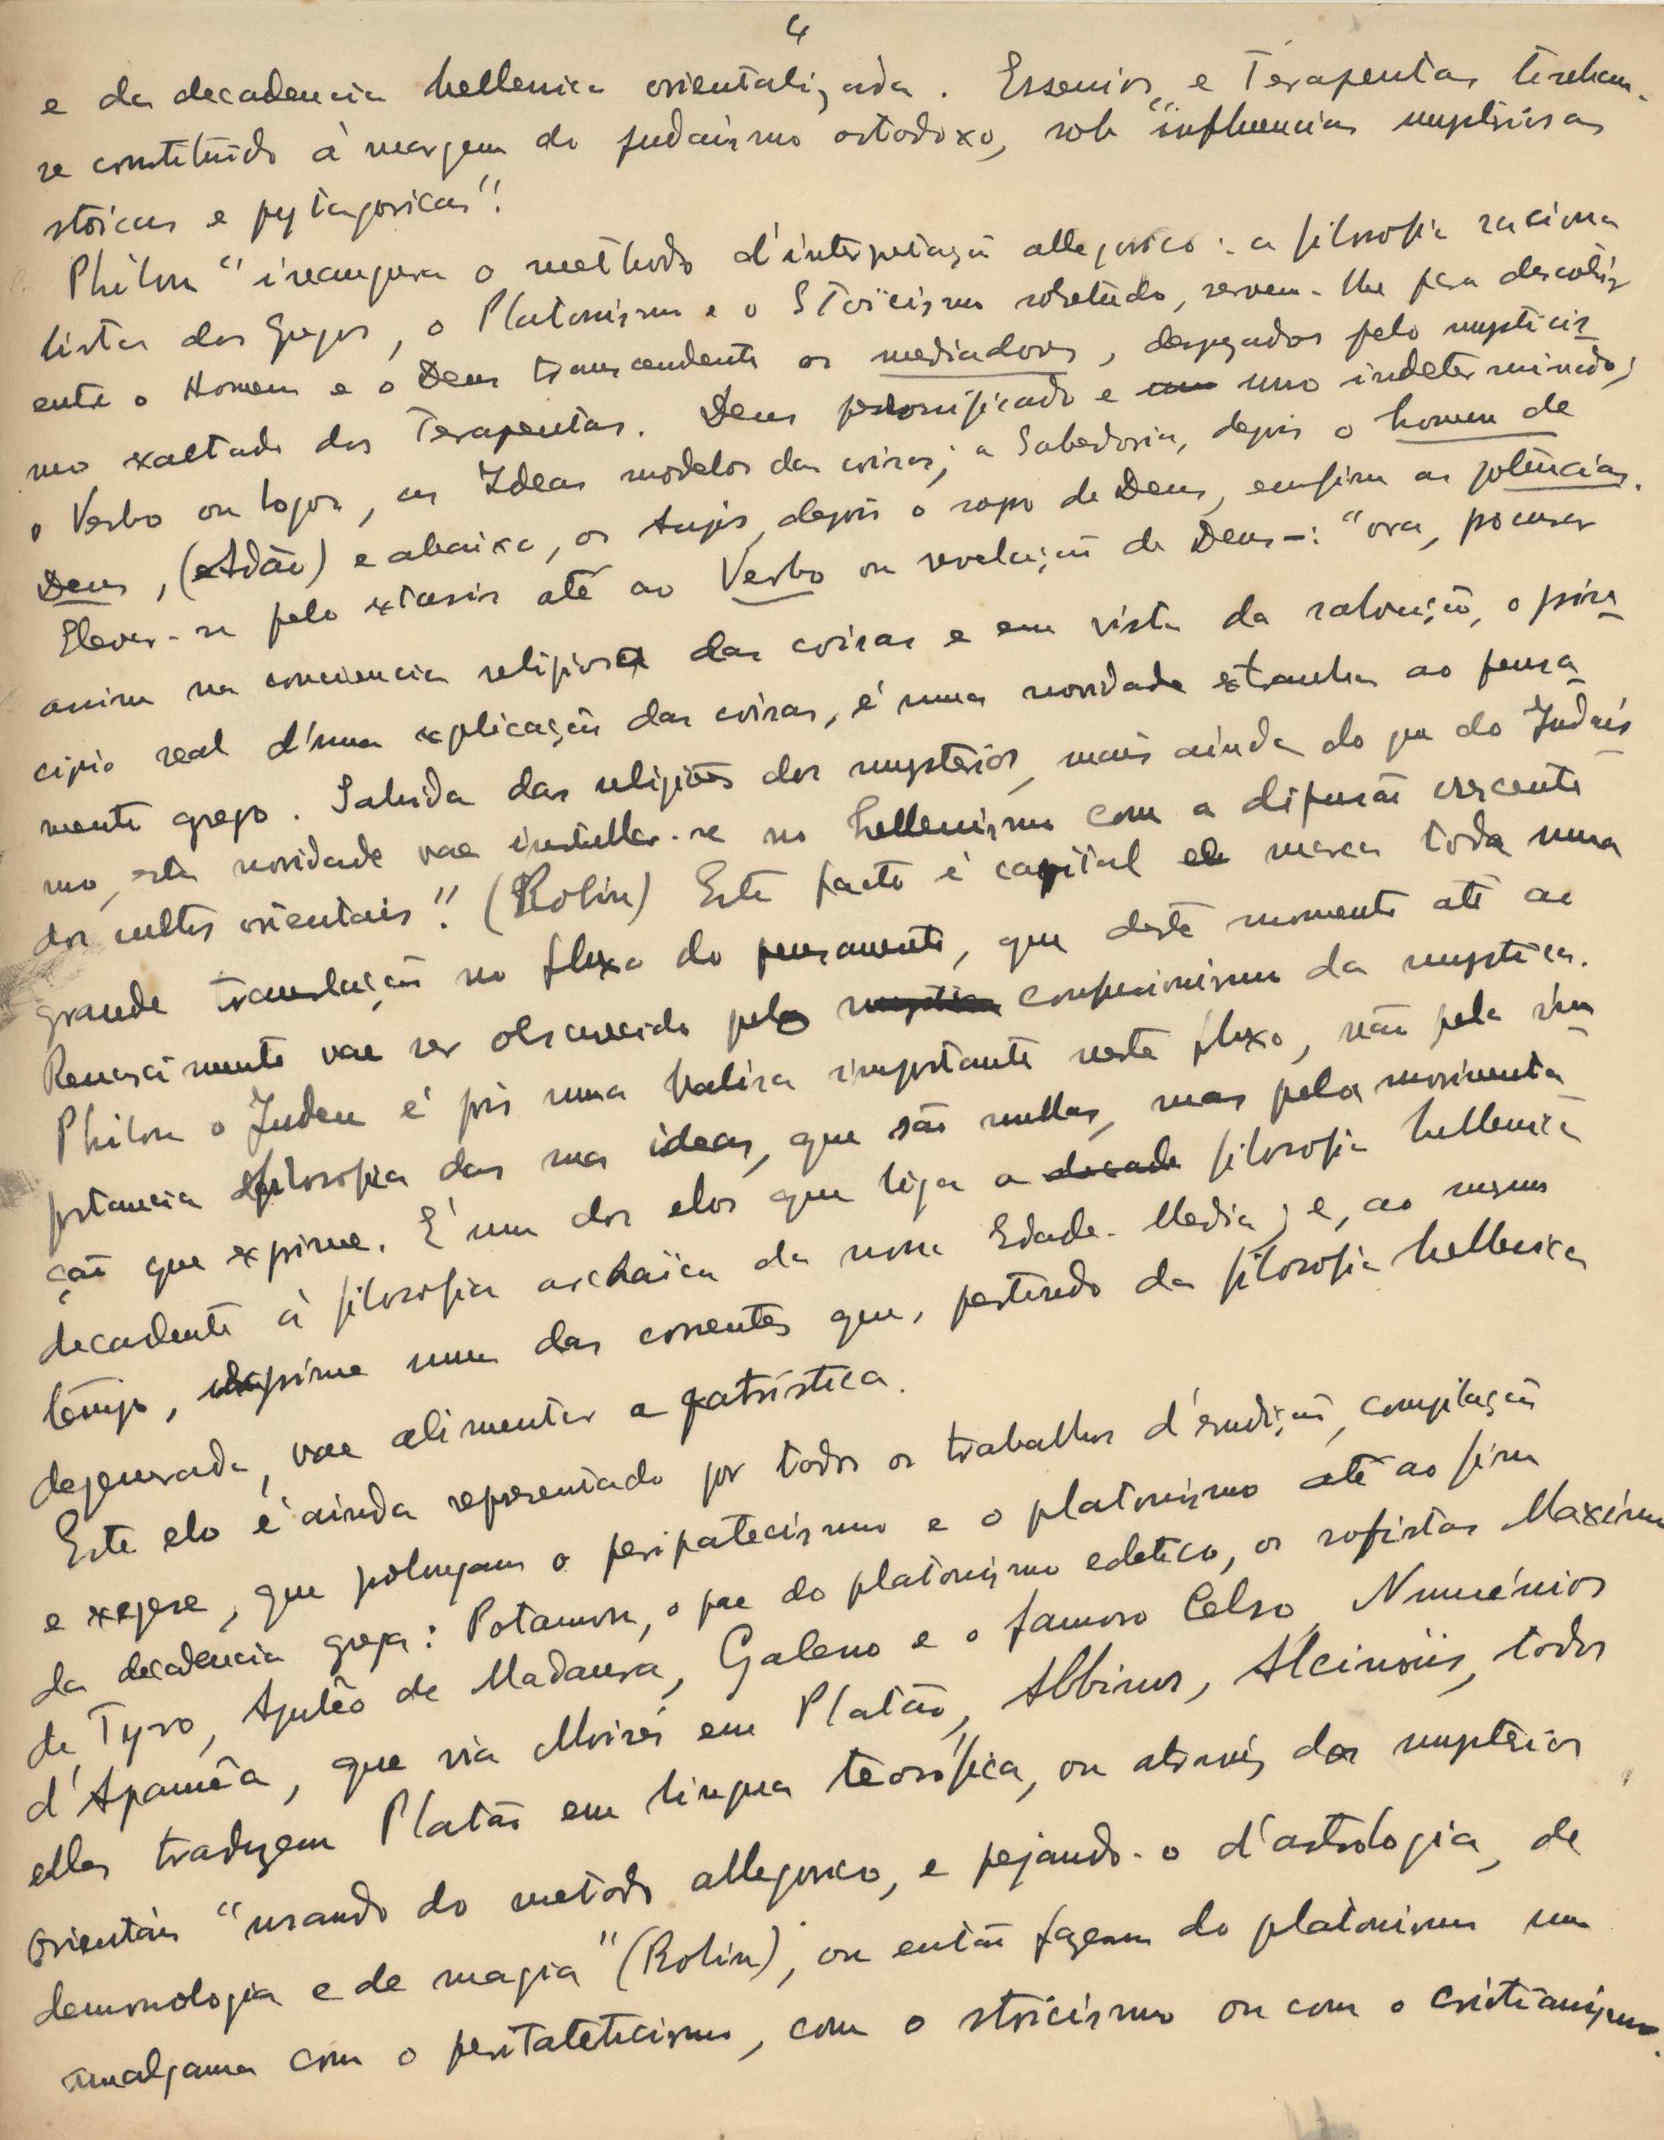 4
e da decadencia hellenica orientalizada. Essenios e Terapeutas tinham-
se constituido à margem do judaismo ortodoxo, sob "influencias mysteriosas
stoicas e pytagoricas".
Philon "inaugura o methodo d'interpretação allegorico: a filosofia raciona
lista dos Gregos, o Platonismo e o Stoïcismo sobretudo, servem-lhe para descobrir
entre o Homem e o Deus transcendente os mediadores, desejados pelo mysticis
mo exaltado dos Terapeutas. Deus personificado e uno indeterminado;
o Verbo ou logos, as Ideas modelos das coisas; a Sabedoria, depois o homem de
Deus, (Adão) e abaixo, os Anjos, depois o sopro de Deus, enfim as potencias.
Elevar-se pelo extasis até ao Verbo ou revelação de Deus-: "ora, procurar
assim na consciencia religiosa das coisas e em vista da salvação, o prin
cipio real d'uma explicação das coisas, é uma novidade extranha ao pensa
mento grego. Sahida das religiões dos mysterios, mais ainda do que do Judaïs
mo, esta novidade vae installar-se no hellenismo com a difusão crescente
dos cultos orientais". (Robin) Este facto é capital e marca toda uma
grande translação no fluxo do pensamento, que deste momento até ao
Renascimento vae ser obscurecido pelo confusionismo da mystica.
Philon o Judeu é pois uma baliza importante neste fluxo, não pela im
portancia filosofica das suas ideas, que são nullas, mas pela movimenta
ção que exprime. É um dos elos que liga a filosofia hellenica
decadente à filosofia archaïca da nova Edade-Media; e, ao mesmo
tempo, exprime uma das correntes que, partindo da filosofia hellenica
degenerada, vae alimentar a patristica.
Este elo é ainda representado por todos os trabalhos d'erudição, compilação
e exegese, que prolongam o peripatecismo e o platonismo até ao fim
da decadencia grega: Potamon, o pae do platonismo ecletico, os sofistas Maximo
de Tyro, Apulêo de Madaura, Galeno e o famoso Celso, Numénios
d'Apamêa, que via Moisés em Platão, Albinus, Alcinoüs, todos
elles traduzem Platão em lingua teosófica, ou através dos mysterios
orientais "usando do metodo allegorico, e pejando-o d'astrologia, de
demonologia e de magia" (Robin), ou então fazem do platonismo um
amalgama com o peritateticismo, com o stoicismo ou com o cristianismo.